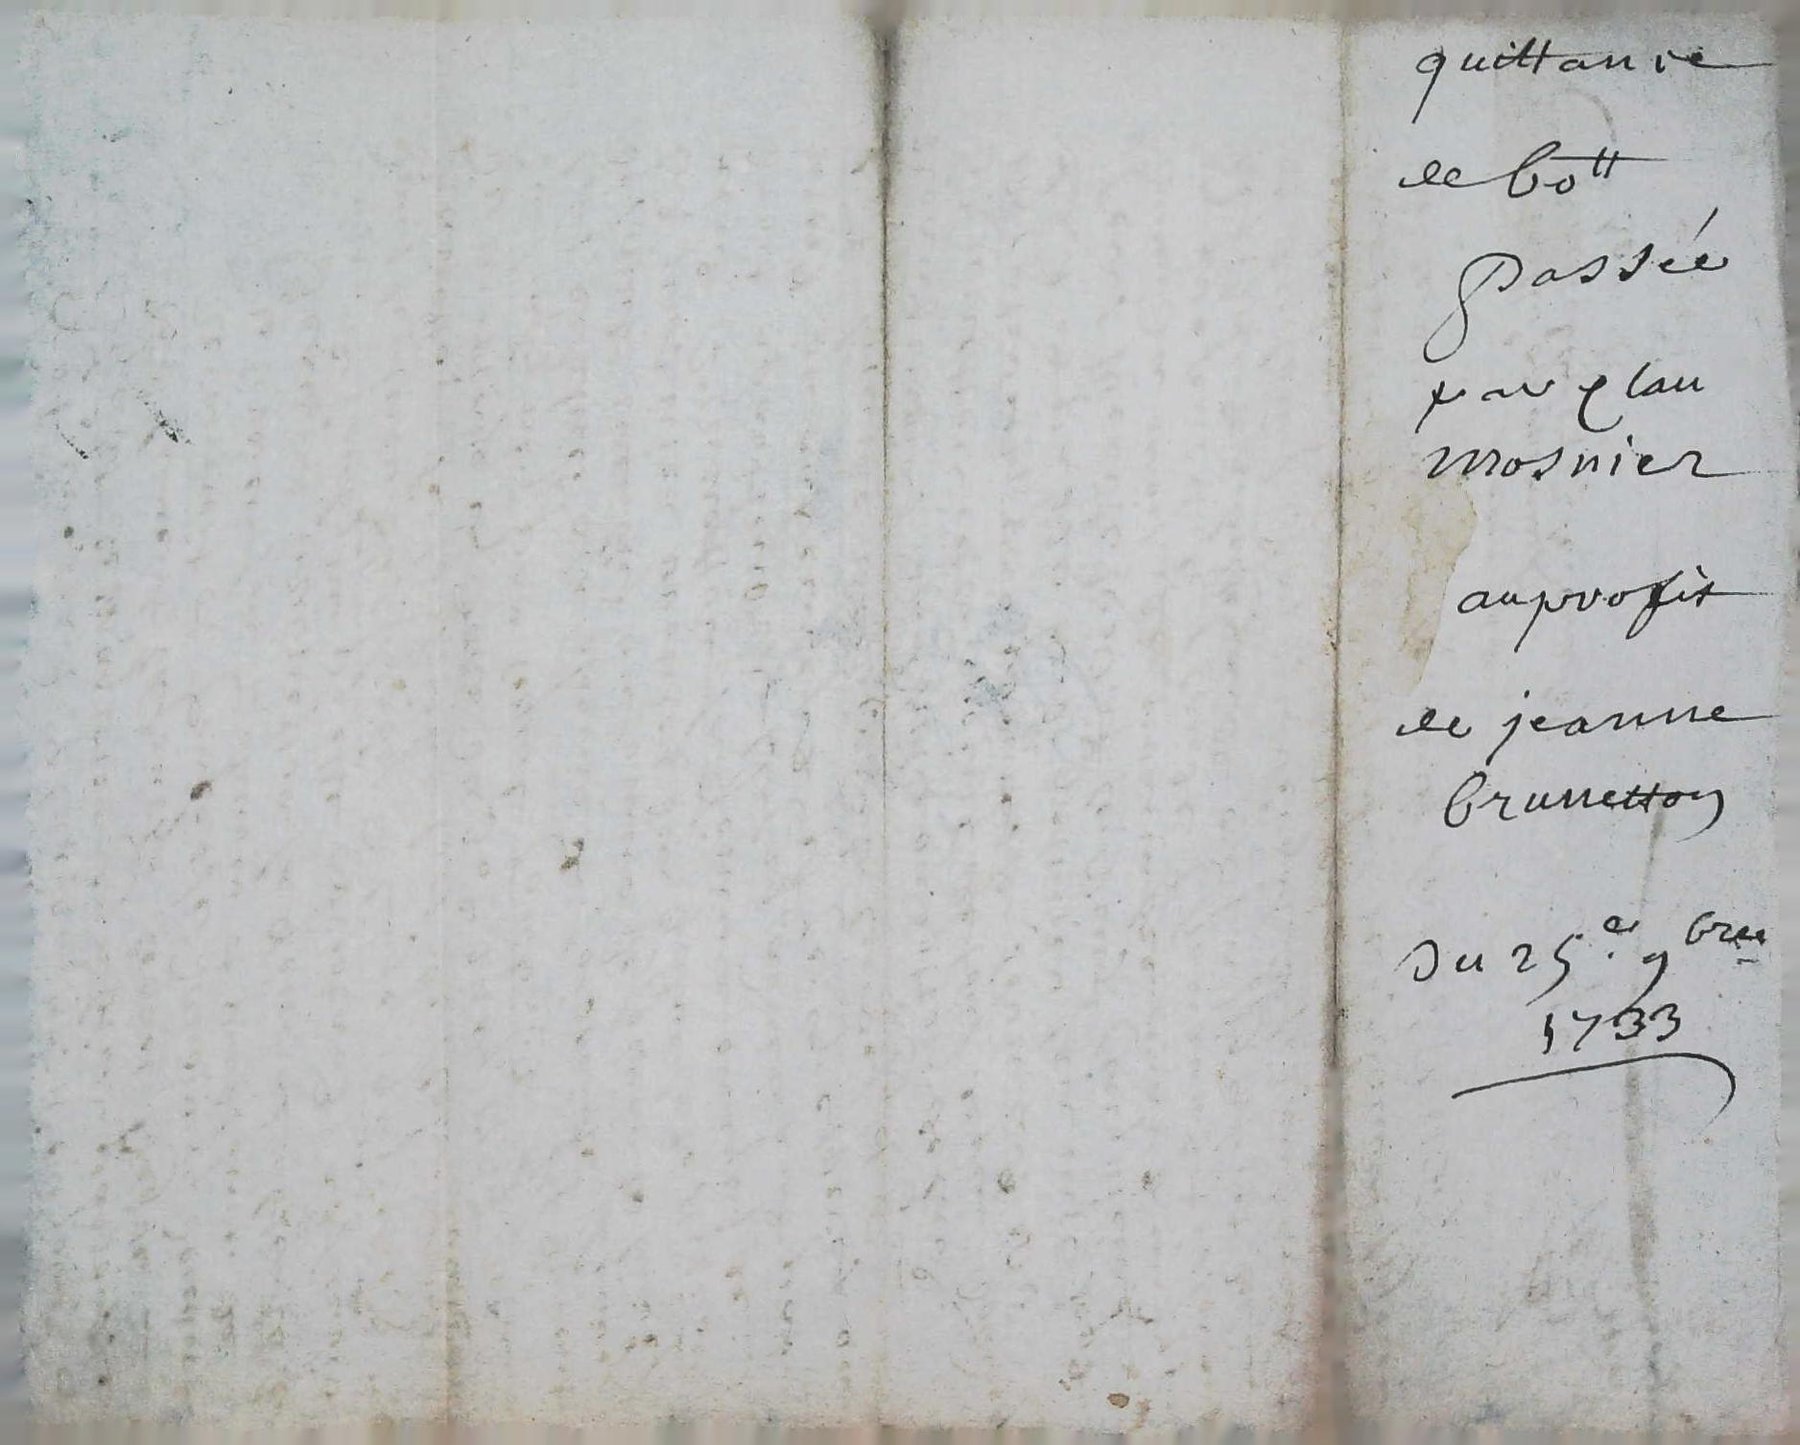 quittance
de 60 ₶
passée
par Clau
mosnier
au profit
de jeanne
brunetton
Du 25.e 9bre
1733